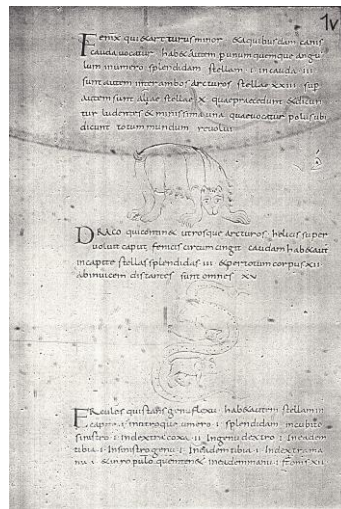 1v
Fenix qui & arcturus minor & a quibusdam canis
cauda vocatur hab& autem p unumquemque angu
lum in numero splendidam stellam i in cauda iii
sunt autem inter ambos arcturos stellae xxiii sup
autem sunt aliae stellae x quae praecedunt & dicun
tur ludentes & minissima una quae vocatur polus ubi
dicunt totum mundum revolui
DRACO qui contin& utrosque arcturos helicis super
voluit caput fenicis circumcingit caudam hab& aut
in capite stellas splendidas iii & per totum corpus xii
ab invicem distantes sunt omnes xx
ERculos qui stans genu flexu hab& autem stellam in
capite i in utroque umero i splendidam in cubito
sinistro i In dextra coxa ii In genu dextro i In eadem
tibia i In sinistro genu i In eadem tibia i In dextra ma
nu i & in eadem manu